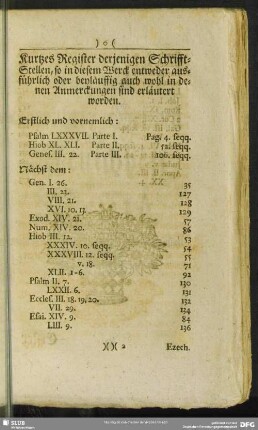 ) o (
Kurtzes Register derjenigen Schrifft-
Stellen, so in diesem Werck entweder aus-
führlich oder beyläuffig auch wohl in de-
nen Anmerckungen sind erläutert
worden.
Erstlich und vornemlich:
Psalm LXXXVII. Parte I. Pag. 4. seqq.
Hiob XL. XLI. Parte II. seqq.
Genes. III. 22. Parte III. 106. seqq.
Nächst dem:
Gen. I. 26. 35
III. 23. 127
VIII. 21. 128
XVI. 10. 13. 129
Exod. XIV. 21. 57
Num. XIV. 20. 86
Hiob III. 12. 53
XXXIV. 10. seqq. 54
XXXVIII. 12. seqq. 55
v. 18. 71
XLII. 1-6. 92
Psalm II. 7. 130
LXXII. 6. 131
Eccles. III. 18. 19. 20. 132
VII. 29. 134
Esai. XIV. 9. 84
LIII. 9. 136
)( )( 2 Ezech.
SLUB
DFG